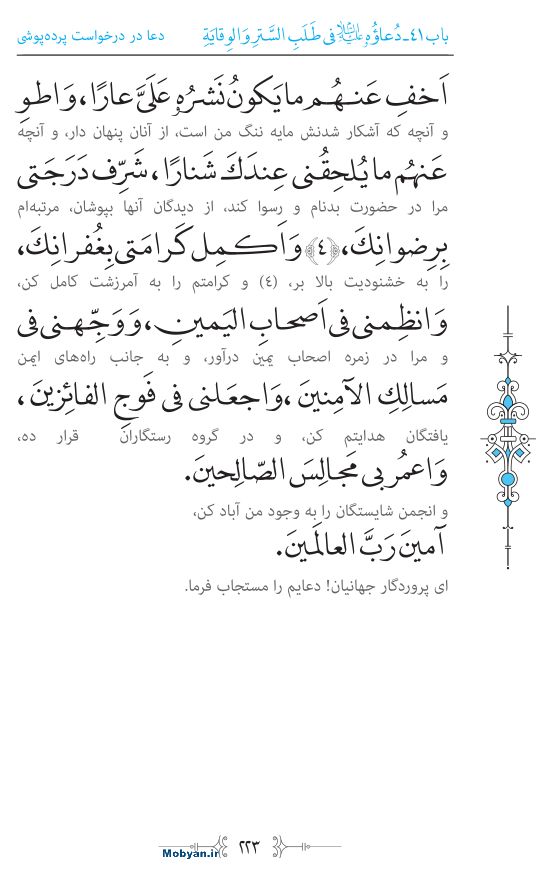 باب ۴۱ـ دُعاؤُهُ علیه‌السلام فی طَلَبِ السَّترِ وَالوِقایَةِ
دعا در درخواست پرده‌پوشی
اَخفِ عَنهُم ما یَکونُ نَشرُهُ عَلَیَّ عارًا، وَاطوِ
و آنچه که آشکار شدنش مایه ننگ من است، از آنان پنهان دار، و آنچه
عَنهُم ما یُلحِقُنی عِندَکَ شَنارًا، شَرِّف دَرَجَتی
مرا در حضورت بدنام و رسوا کند، از دیدگان آنها بپوشان، مرتبه‌ام
بِرِضوانِکَ، ﴿٤﴾ وَاَکمِل کَرامَتی بِغُفرانِکَ،
را به خشنودیت بالا بر، (٤) و کرامتم را به آمرزشت کامل کن،
وَانظِمنی فی اَصحابِ الیَمینِ، وَوَجِّهنی فی
و مرا در زمره اصحاب یمین درآور، و به جانب راه‌های ایمن
مَسالِکِ الآمِنینَ، وَاجعَلنی فی فَوجِ الفائِزینَ،
یافتگان هدایتم کن، و در گروه رستگارانَ قرار ده،
وَاعمُر بی مَجالِسَ الصّالِحینَ.
و انجمن شایستگان را به وجود من آباد کن،
آمینَ رَبَّ العالَمینَ.
ای پروردگار جهانیان! دعایم را مستجاب فرما.
۲۲۳
Mobyan.ir